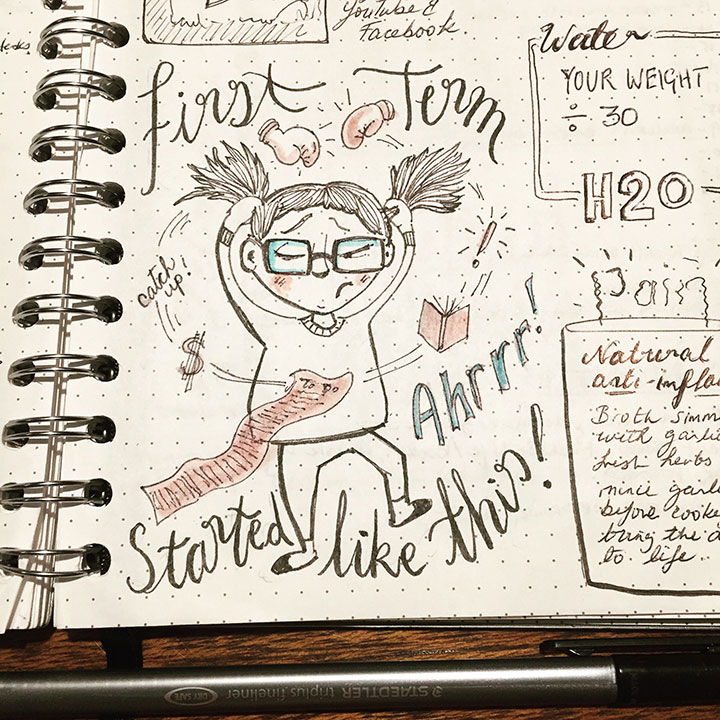 YouTube &
Facebook.
First Term
catch
up!
$
To Do
!
Ahrrr!
Started like this!
Water
YOUR WEIGHT
÷ 30
H2O
Pain
Natural
anti-infla
Broth simm
with garli
fresh herbs
mince garl
before cooke
bring the a
to life
STAEDTLER triplus fineliner
DRY SAFE